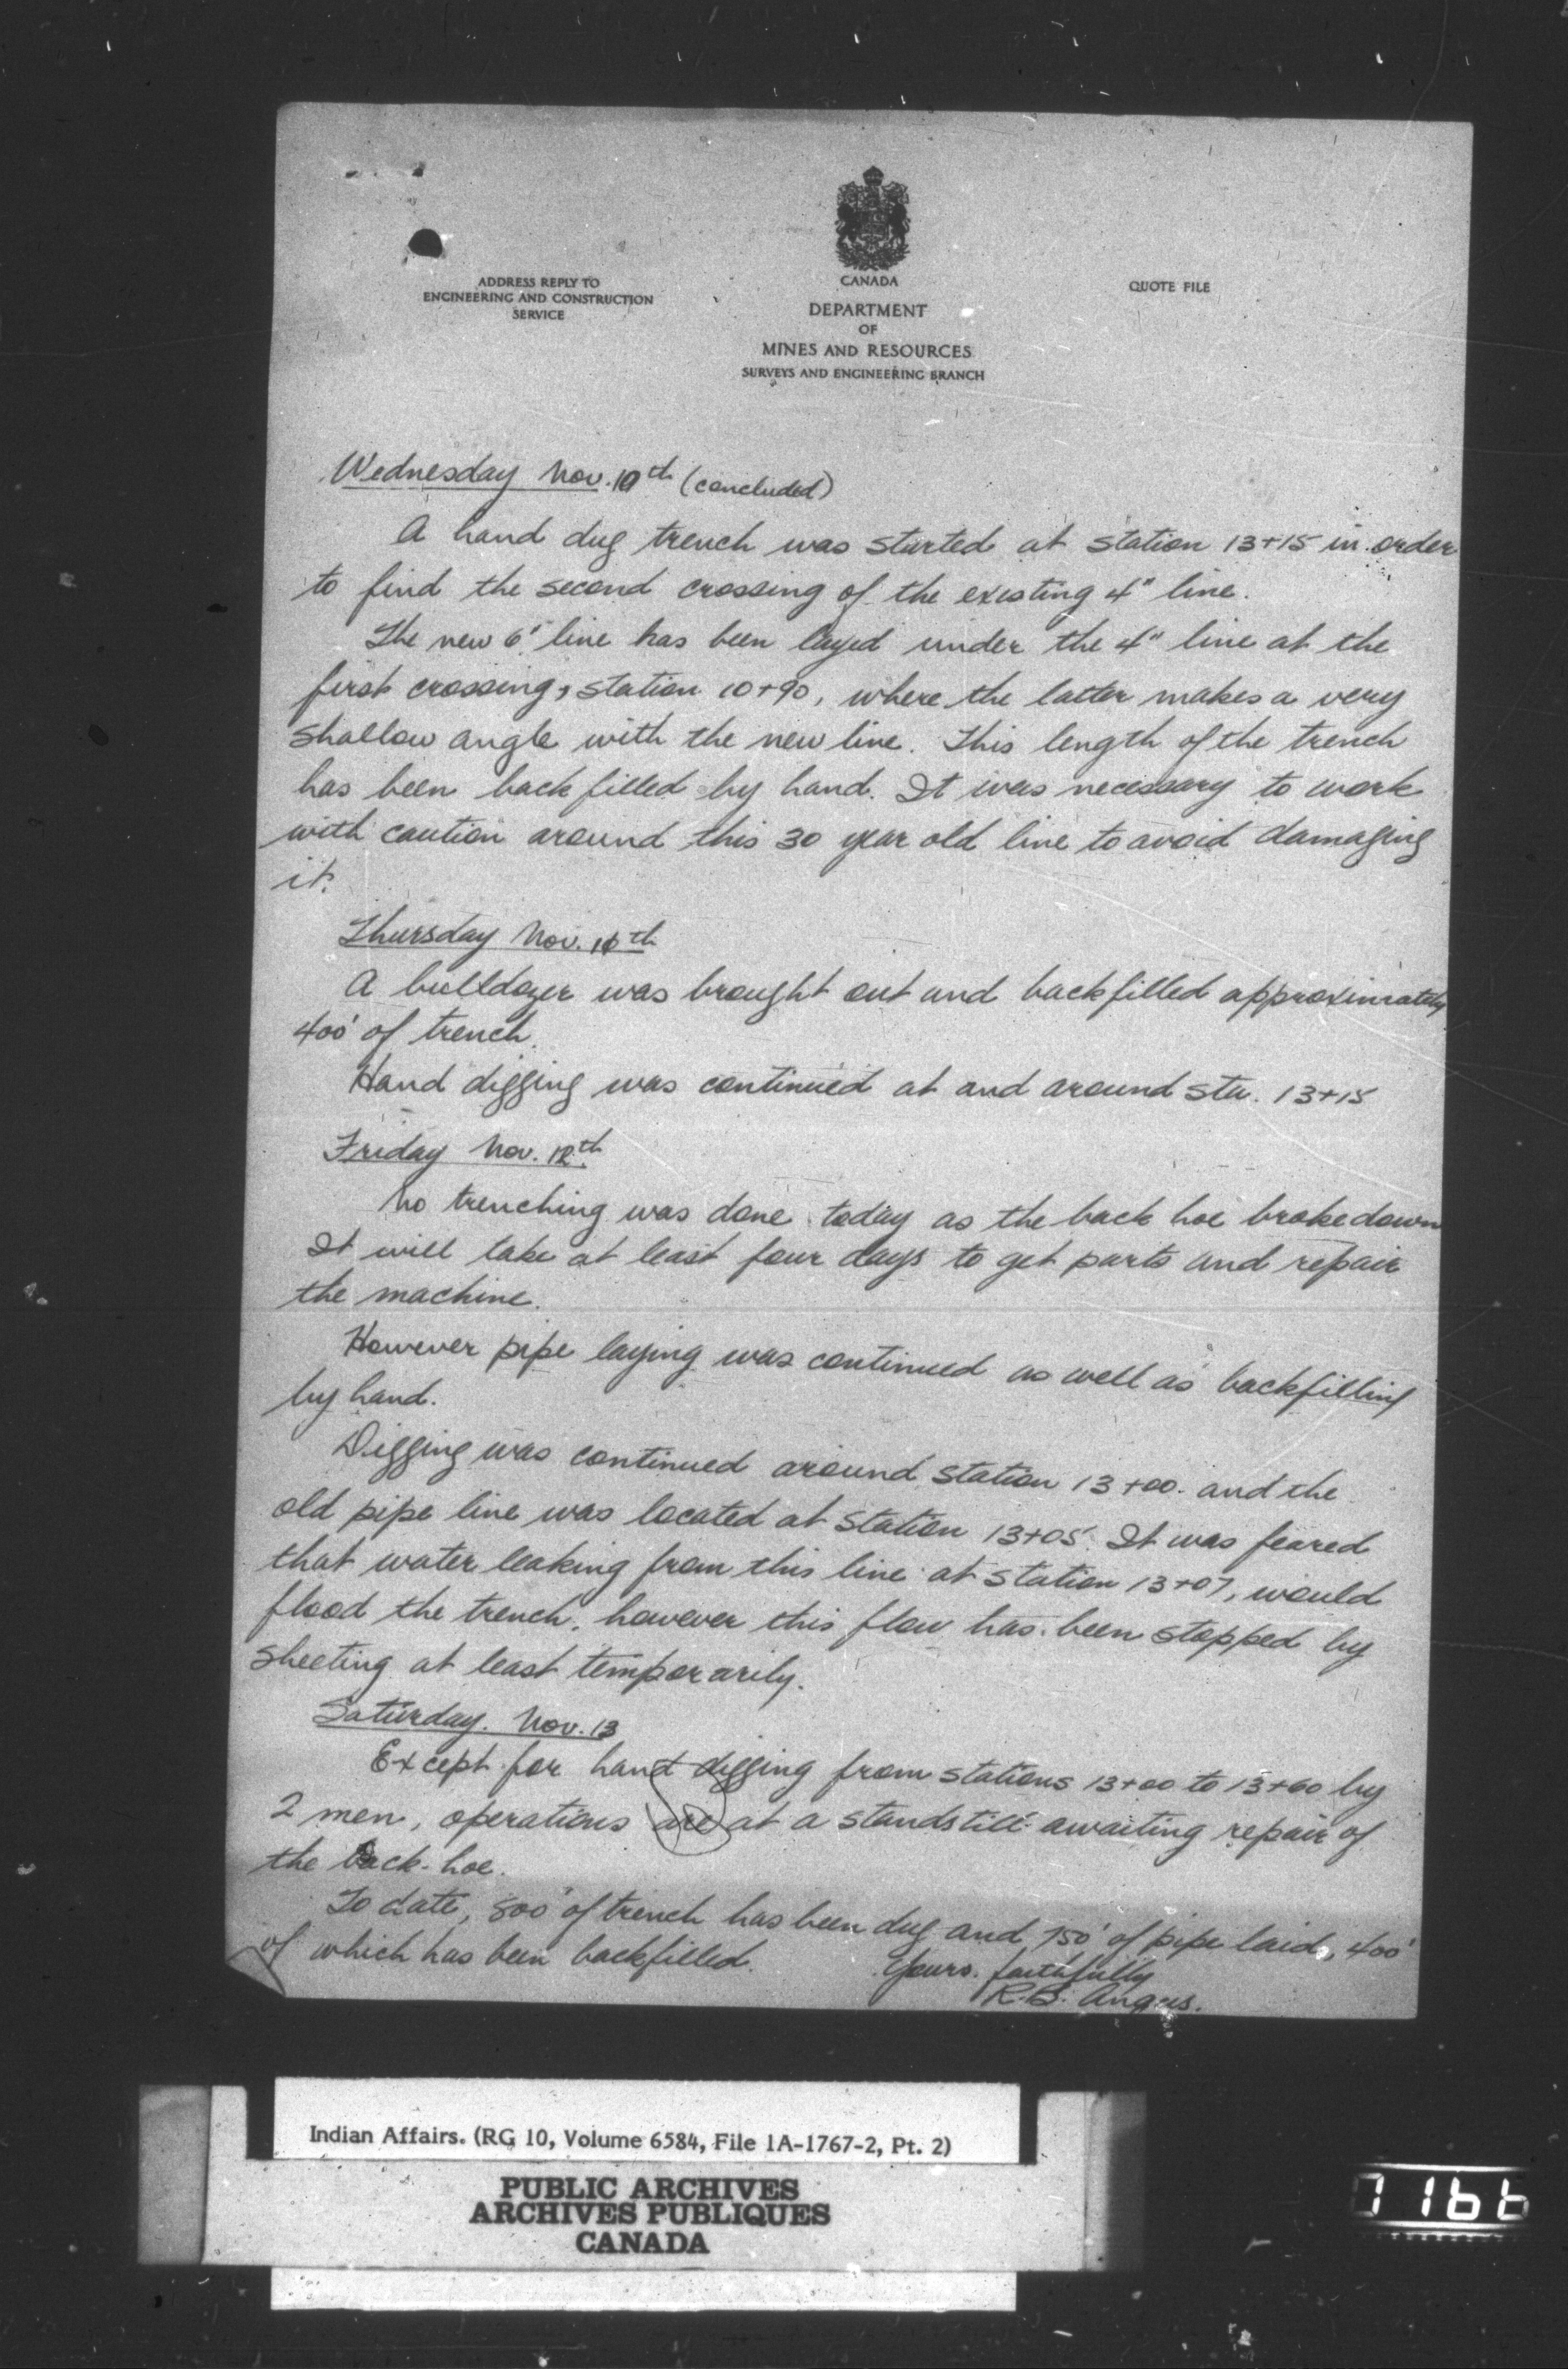 ADDRESS REPLY TO
ENGINEERING AND CONSTRUCTION
SERVICE
CANADA
DEPARTMENT
OF
MINES AND RESOURCES
SURVEYS AND ENGINEERING BRANCH
QUOTE FILE
Wednesday Nov. 10th (concluded)
A hand dug trench was started at station 13+15 in order
to find the second crossing of the existing 4" line.
The new 6" line has been layed under the 4" line at the
first crossing, station 10+90, where the latter makes a very
shallow angle with the new line. This length of the trench
has been back filled by hand. It was necessary to work
with caution around this 30 year old line to avoid damaging
it.
Thursday Nov. th
A bulldozer was brought out and backfilled approximately
400' of trench.
Hand digging was continued at and around sta. 13+15
Friday Nov. 12th
No trenching was done today as the back hoe broke down
It will take at least four days to get parts and repair
the machine.
However pipe laying was continued as well as backfilling
by hand.
Digging was continued around station 13+00. and the
old pipe line was located at station 13+05. It was feared
that water leaking from this line at station 13+07, would
flood the trench, however this flow has been stopped by
sheeting at least temporarily.
Saturday. Nov. 13
Except for hand digging from stations 13+00 to 13+60 by
2 men, operations are at a standstill awaiting repair of
the back-hoe.
To date, 800' of trench has been dug and 750' of pipe laid, 400'
of which has been backfilled.
Yours faithfully
R.B. Angus.
Indian Affairs. (RG 10, Volume 6584, File 1A-1767-2, Pt. 2)
PUBLIC ARCHIVES
ARCHIVES PUBLIQUES
CANADA
7166